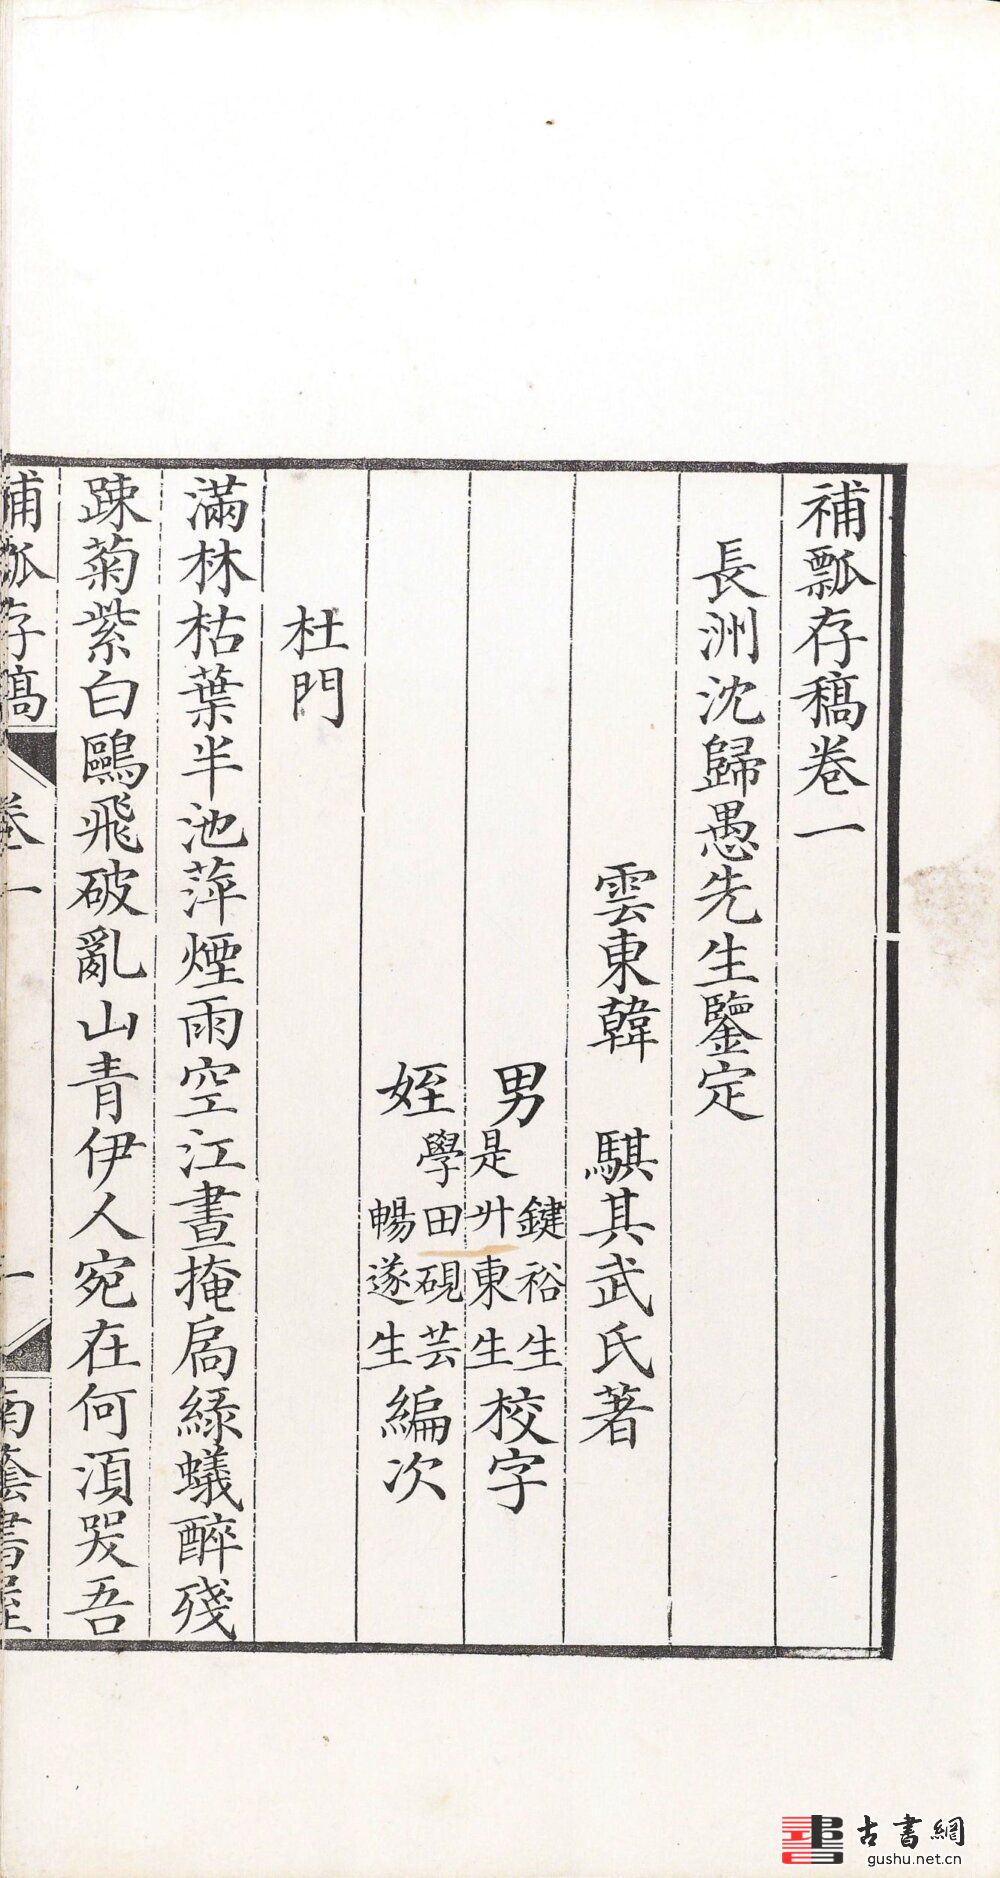 補瓢存稿卷一
長洲沈歸愚先生鑒定
雲東韓 騏其武氏著
男 鍵裕生 是升東生 校字
姪 學田硯芸 暢遂生 編次
杜門
滿林枯葉半池萍煙雨空江晝掩扃綠蟻醉殘
踈菊紫白鷗飛破亂山青伊人宛在何湏哭吾
補瓢存稿 卷一 一 南蔭書屋
古書網
gushu.net.cn